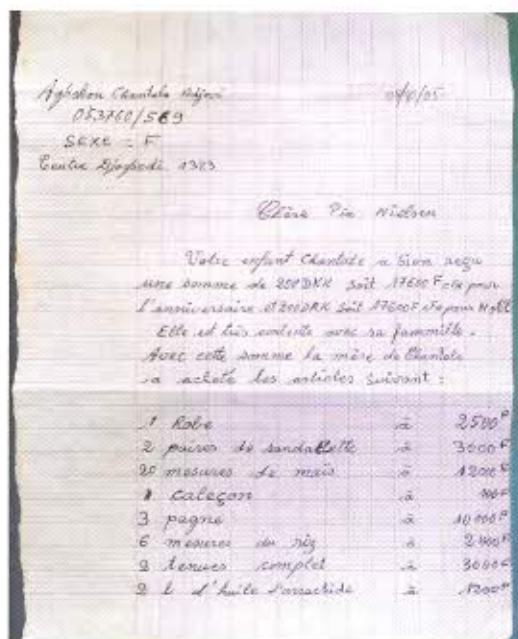 Agbahon Chantale Adjovi
053760/569
SEXE = F
Centre Djogbedi 1323
Chère Pia Nielsen
Votre enfant Chantale a bien reçu
une somme de 200DKK soit 17600F cfa pour
l'anniversaire et 200DKK soit 17600F cfa pour Noël
Elle est très contente avec sa fammille.
Avec cette somme la mère de Chantale
a acheté les articles suivant :
1 Robe à 2500F
2 paires de sandalette à 3000F
20 mesures de maïs à 12000F
1 caleçon à
3 pagne à 10 000F
6 mesures du riz à 2400F
2 tenues complet à 3000F
2 l d'huile d'arrachide à 1200F